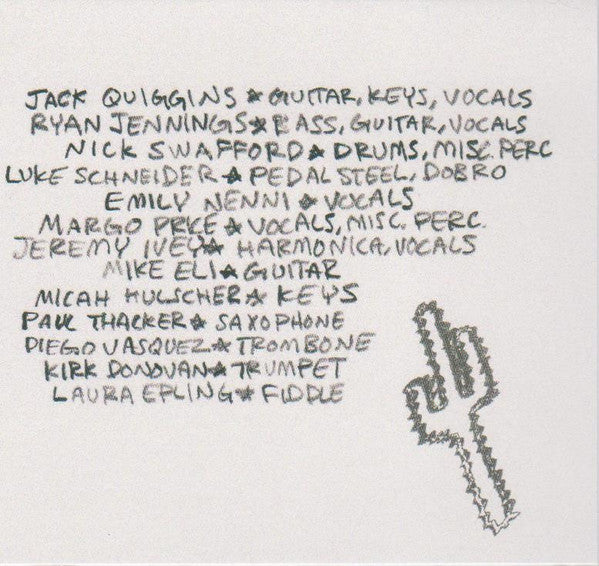 JACK QUIGGINS ★ GUITAR, KEYS, VOCALS
RYAN JENNINGS ★ BASS, GUITAR, VOCALS
NICK SWAFFORD ★ DRUMS, MISC. PERC
LUKE SCHNEIDER ★ PEDAL STEEL, DOBRO
EMILY NENNI ★ VOCALS
MARGO PRICE ★ VOCALS, MISC. PERC.
JEREMY IVEY ★ HARMONICA, VOCALS
MIKE ELI ★ GUITAR
MICAH HULSCHER ★ KEYS
PAUL THACKER ★ SAXOPHONE
DIEGO VASQUEZ ★ TROMBONE
KIRK DONOVAN ★ TRUMPET
LAURA EPLING ★ FIDDLE